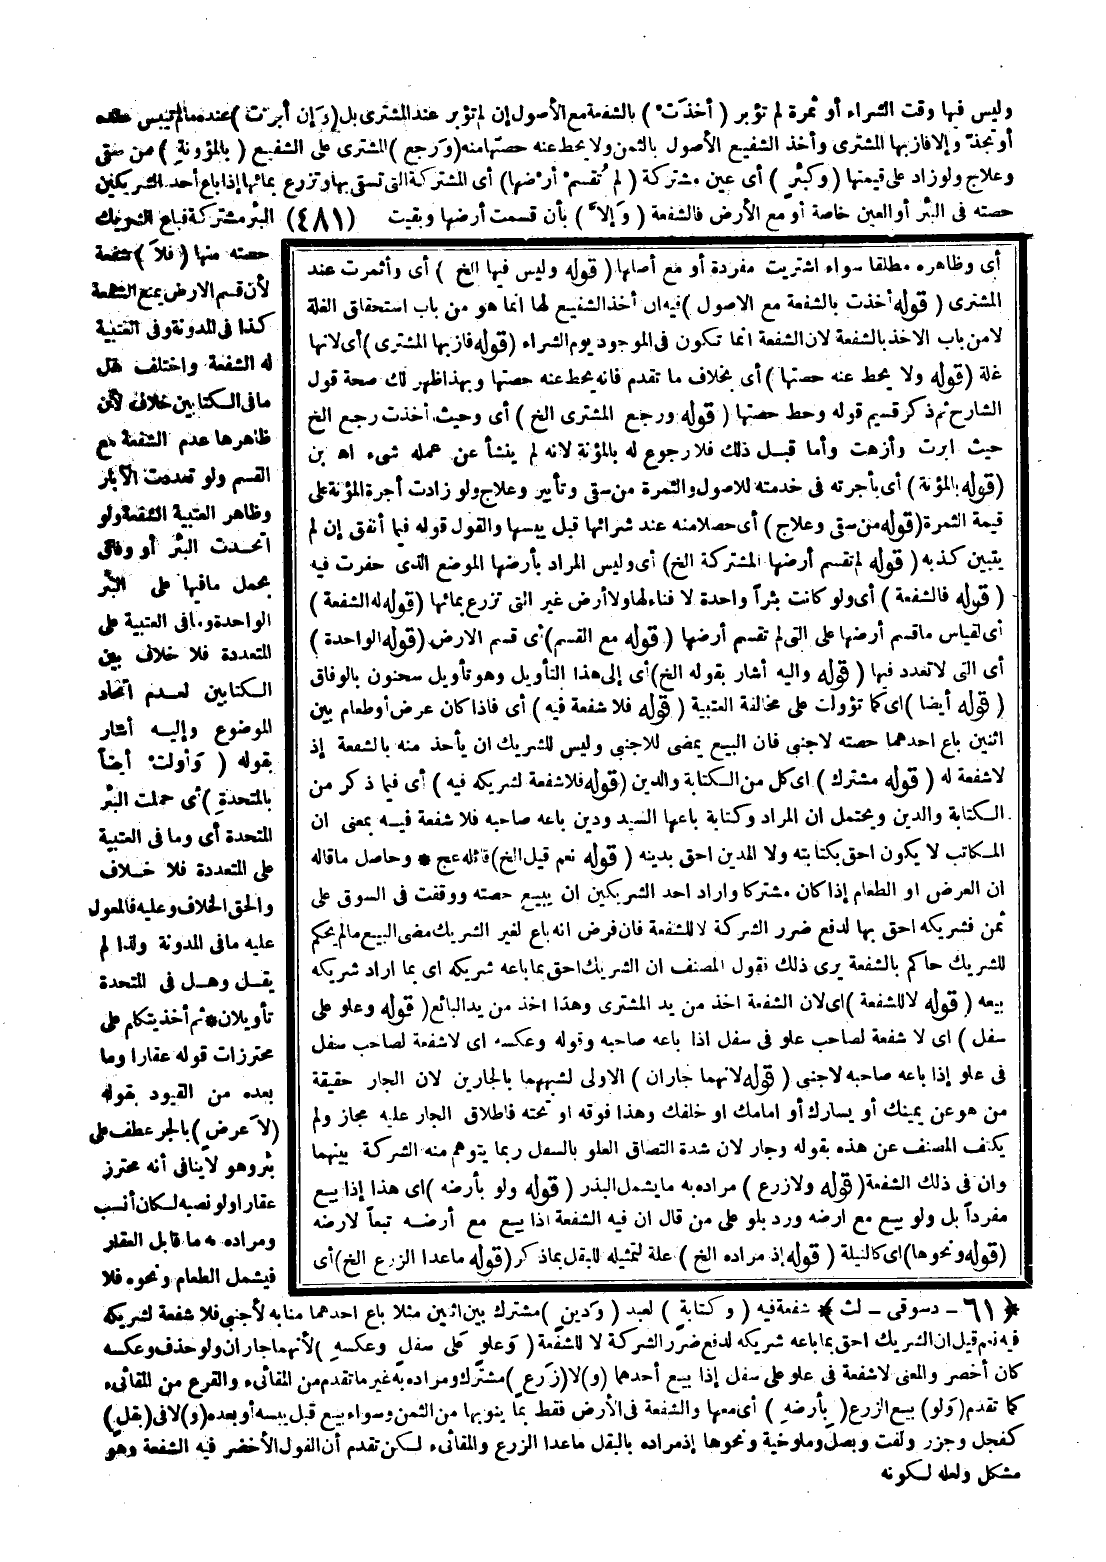 وليس فيها وقت الشراء أو ثمرة لم تؤبر ( أخذت ) بالشفعة مع الأصول إن لم تؤبر عند المشترى بل (وإن أبرت) عنده مالم تيبس عنده
أو تجذ وإلا فاز بها المشترى وأخذ الشفيع الأصول بالثمن ولا يحط عنه حصتها منه (ورجع) المشترى على الشفيع ( بالمؤونة ) من سقى
وعلاج ولو زاد على قيمتها (وكبئر ) أى عين مشتركة ( لم تقسم أرضها) أى المشتركة التى تسقى بها وتزرع بمائها إذا باع أحد الشريكين
حصته فى البئر أو العين خاصة أو مع الأرض فالشفعة ( وإلا ) بأن قسمت أرضها وبقيت (٤٨١) البئر مشتركة فباع الشريك
حصته منها ( فلا ) شفعة
لأن قسم الارض يمنع الشفعة
كذا فى المدونة وفى العتبية
له الشفعة واختلف هل
ما فى الكتابين خلاف لأن
ظاهرها عدم الشفعة مع
القسم ولو تعددت الآبار
وظاهر العتبية الشفعة ولو
اتحدت البئر أو وفاق
بحمل ما فيها على البئر
الواحدة وما فى العتبية على
المتعددة فلا خلاف بين
الكتابين لعدم اتحاد
الموضوع وإليه أشار
بقوله ( وأولت أيضاً
بالمتحدة ) أى حملت البئر
المتحدة أى وما فى العتبية
على المتعددة فلا خلاف
والحق الخلاف وعليه فالمعول
عليه ما فى المدونة ولذا لم
يقل وهل فى المتحدة
تأويلان * ثم أخذ يتكلم على
محترزات قوله عقارا وما
بعده من القيود بقوله
(لا عرض) بالجر عطف على
بئر وهو لا ينافى أنه محترز
عقارا ولو نصبه لكان أنسب
ومراده به ما قابل العقار
فيشمل الطعام ونحوه فلا
أى وظاهره مطلقا سواء اشتريت مفردة أو مع أصلها ( قوله وليس فيها الخ ) أى وأثمرت عند
المشترى ( قوله أخذت بالشفعة مع الاصول ) فيه ان أخذ الشفيع لها انما هو من باب استحقاق الغلة
لا من باب الاخذ بالشفعة لان الشفعة انما تكون فى الموجود يوم الشراء (قوله فاز بها المشترى) أى لانها
غلة (قوله ولا يحط عنه حصتها ) أى بخلاف ما تقدم فانه يحط عنه حصتها وبهذا ظهر لك صحة قول
الشارح ثم ذكر قسيم قوله وحط حصتها ( قوله ورجع المشترى الخ ) أى وحيث أخذت رجع الخ
حيث ابرت وأزهت وأما قبل ذلك فلا رجوع له بالمؤنة لانه لم ينشأ عن عمله شىء اه بن
(قوله بالمؤنة ) أى بأجرته فى خدمته للاصول والثمرة من سقى وتأبير وعلاج ولو زادت أجرة المؤنة على
قيمة الثمرة (قوله من سقى وعلاج ) أى حصلا منه عند شرائها قبل يبسها والقول قوله فيما أنفق إن لم
يتبين كذبه ( قوله لم تقسم أرضها المشتركة الخ) أى وليس المراد بأرضها الموضع الذى حفرت فيه
( قوله فالشفعة ) أى ولو كانت بئراً واحدة لا فناء لها ولا أرض غير التى تزرع بمائها (قوله له الشفعة )
أى لقياس ما قسم أرضها على التى لم تقسم أرضها ( قوله مع القسم) أى قسم الارض (قوله الواحدة )
أى التى لا تعدد فيها ( قوله واليه أشار بقوله الخ) أى إلى هذا التأويل وهو تأويل سحنون بالوفاق
( قوله أيضا ) اى كما تؤولت على مخالفة العتبية ( قوله فلا شفعة فيه ) أى فاذا كان عرض أو طعام بين
اثنين باع احدهما حصته لاجنبى فان البيع يمضى للاجنبى وليس للشريك ان يأخذ منه بالشفعة إذ
لا شفعة له ( قوله مشترك ) اى كل من الكتابة والدين (قوله فلا شفعة لشريكه فيه ) أى فيما ذكر من
الكتابة والدين ويحتمل ان المراد وكتابة باعها السيد ودين باعه صاحبه فلا شفعة فيه بمعنى ان
المكاتب لا يكون احق بكتابته ولا المدين احق بدينه ( قوله نعم قيل الخ) قائله عج * وحاصل ما قاله
ان العرض او الطعام إذا كان مشتركا واراد احد الشريكين ان يبيع حصته ووقفت فى السوق على
ثمن فشريكه احق بها لدفع ضرر الشركة لا للشفعة فان فرض انه باع لغير الشريك مضى البيع ما لم يحكم
للشريك حاكم بالشفعة يرى ذلك فقول المصنف ان الشريك احق بما باعه شريكه اى بما اراد شريكه
بيعه ( قوله لا للشفعة ) اى لان الشفعة اخذ من يد المشترى وهذا اخذ من يد البائع ( قوله وعلو على
سفل ) اى لا شفعة لصاحب علو فى سفل اذا باعه صاحبه وقوله وعكسه اى لا شفعة لصاحب سفل
فى علو إذا باعه صاحبه لاجنبى ( قوله لانهما جاران ) الاولى لشبههما بالجارين لان الجار حقيقة
من هو عن يمينك أو يسارك أو امامك او خلفك وهذا فوقه او تحته فاطلاق الجار عليه مجاز ولم
يكتف المصنف عن هذه بقوله وجار لان شدة التصاق العلو بالسفل ربما يتوهم منه الشركة بينهما
وان فى ذلك الشفعة (قوله ولا زرع ) مراده به ما يشمل البذر ( قوله ولو بأرضه ) اى هذا إذا بيع
مفرداً بل ولو بيع مع ارضه ورد بلو على من قال ان فيه الشفعة اذا بيع مع أرضه تبعاً لارضه
(قوله ونحوها) اى كالنيلة ( قوله إذ مراده الخ ) علة لتمثيله للبقل بما ذكر (قوله ما عدا الزرع الخ) أى
﴿ ٦١ - دسوقى - لث ﴾ شفعة فيه ( وكتابة ) لعبد ( ودين ) مشترك بين اثنين مثلا باع احدهما منابه لأجنبى فلا شفعة لشريكه
فيه نعم قيل ان الشريك احق بما باعه شريكه لدفع ضرر الشركة لا للشفعة ( وعلو على سفل وعكسه ) لأنهما جاران ولو حذف وعكسه
كان أخصر والمعنى لا شفعة فى علو على سفل إذا بيع أحدهما (و) لا (زرع) مشترك ومراده به غير ما تقدم من المقاثىء والقرع من المقاثىء
كما تقدم (ولو) بيع الزرع ( بأرضه ) أى معها والشفعة فى الأرض فقط بما ينوبها من الثمن وسواء بيع قبل يبسه أو بعده (و) لا فى (بقل)
كفجل وجزر ولفت وبصل وملوخية ونحوها إذ مراده بالبقل ما عدا الزرع والمقاثىء لكن تقدم أن الفول الأخضر فيه الشفعة وهو
مشكل ولعله لكونه